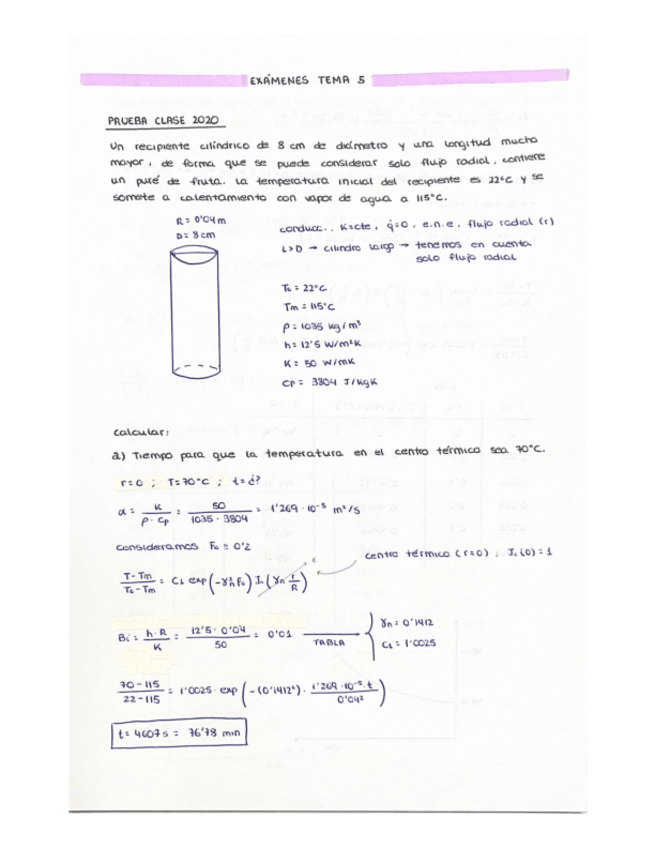 EXÁMENES TEMA 5
PRUEBA CLASE 2020
Un recipiente cilíndrico de 8 cm de diámetro y una longitud mucho
mayor, de forma que se puede considerar solo flujo radial, contiene
un puré de fruta. La temperatura inicial del recipiente es 22°C y se
somete a calentamiento con vapor de agua a 115°C.
R = 0'04 m
D = 8 cm
conducc., K=cte, q̇=0, e.n.e, flujo radial (r)
L>D → cilindro largo → tenemos en cuenta
solo flujo radial
T₀ = 22°C
Tm = 115°C
ρ = 1035 kg/m³
h = 12'5 W/m²K
K = 50 W/mK
Cp = 3804 J/kgK
Calcular:
a) Tiempo para que la temperatura en el centro térmico sea 70°C.
r=0 ; T=70°C ; t=¿?
α = K / ρ · Cp = 50 / 1035 · 3804 = 1'269 · 10⁻⁵ m²/s
Consideramos F₀ ≥ 0'2
Centro térmico (r=0) ; J₀(0) = 1
T - Tm / T₀ - Tm = C₁ exp (-γₙ² F₀) J₀ (γₙ r/R)
Bi = h · R / K = 12'5 · 0'04 / 50 = 0'01 → TABLA { γₙ = 0'1412
C₁ = 1'0025
70 - 115 / 22 - 115 = 1'0025 · exp (-(0'1412²) · 1'269 · 10⁻⁵ · t / 0'04²)
t = 4607 s = 76'78 min